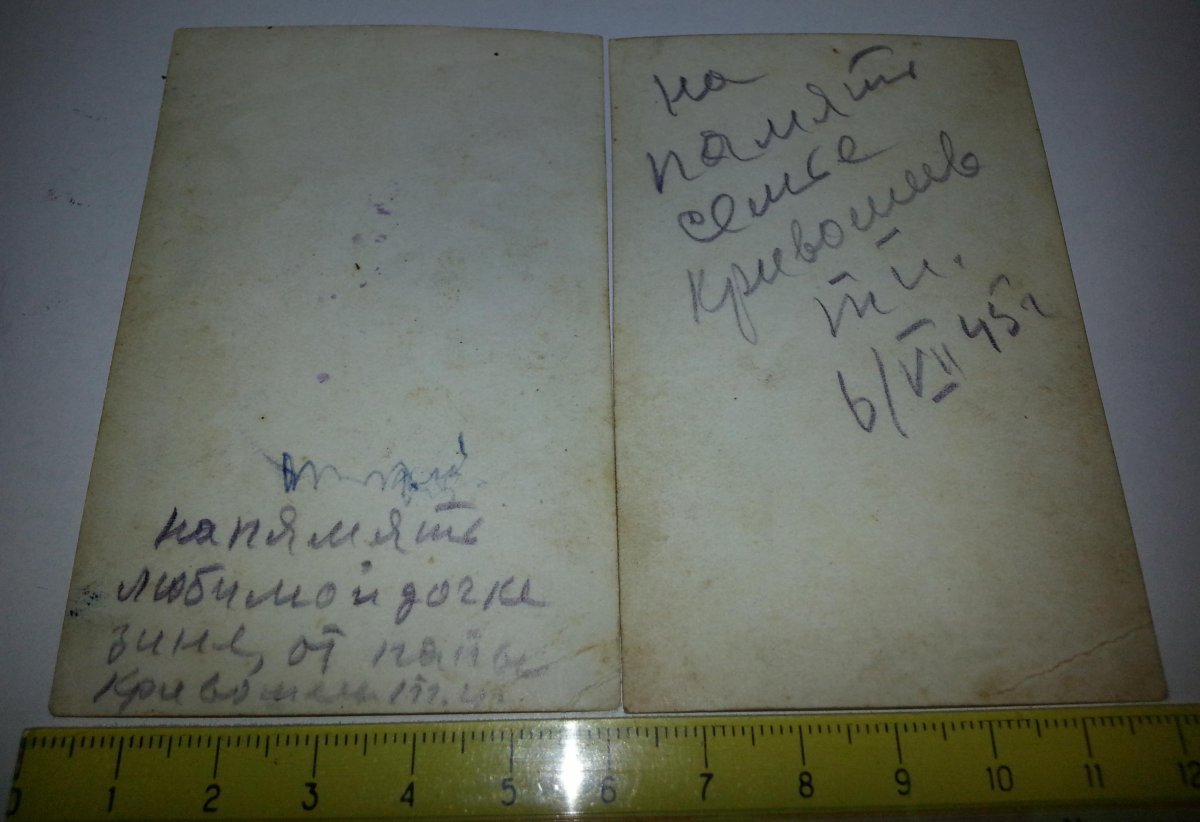 на
память
семье
Кривошеев
Т И.
6/VII 45г
на пямять
любимой дочке
зине, от папы
Кривошеев Т. И.
0 1 2 3 4 5 6 7 8 9 10 11 12